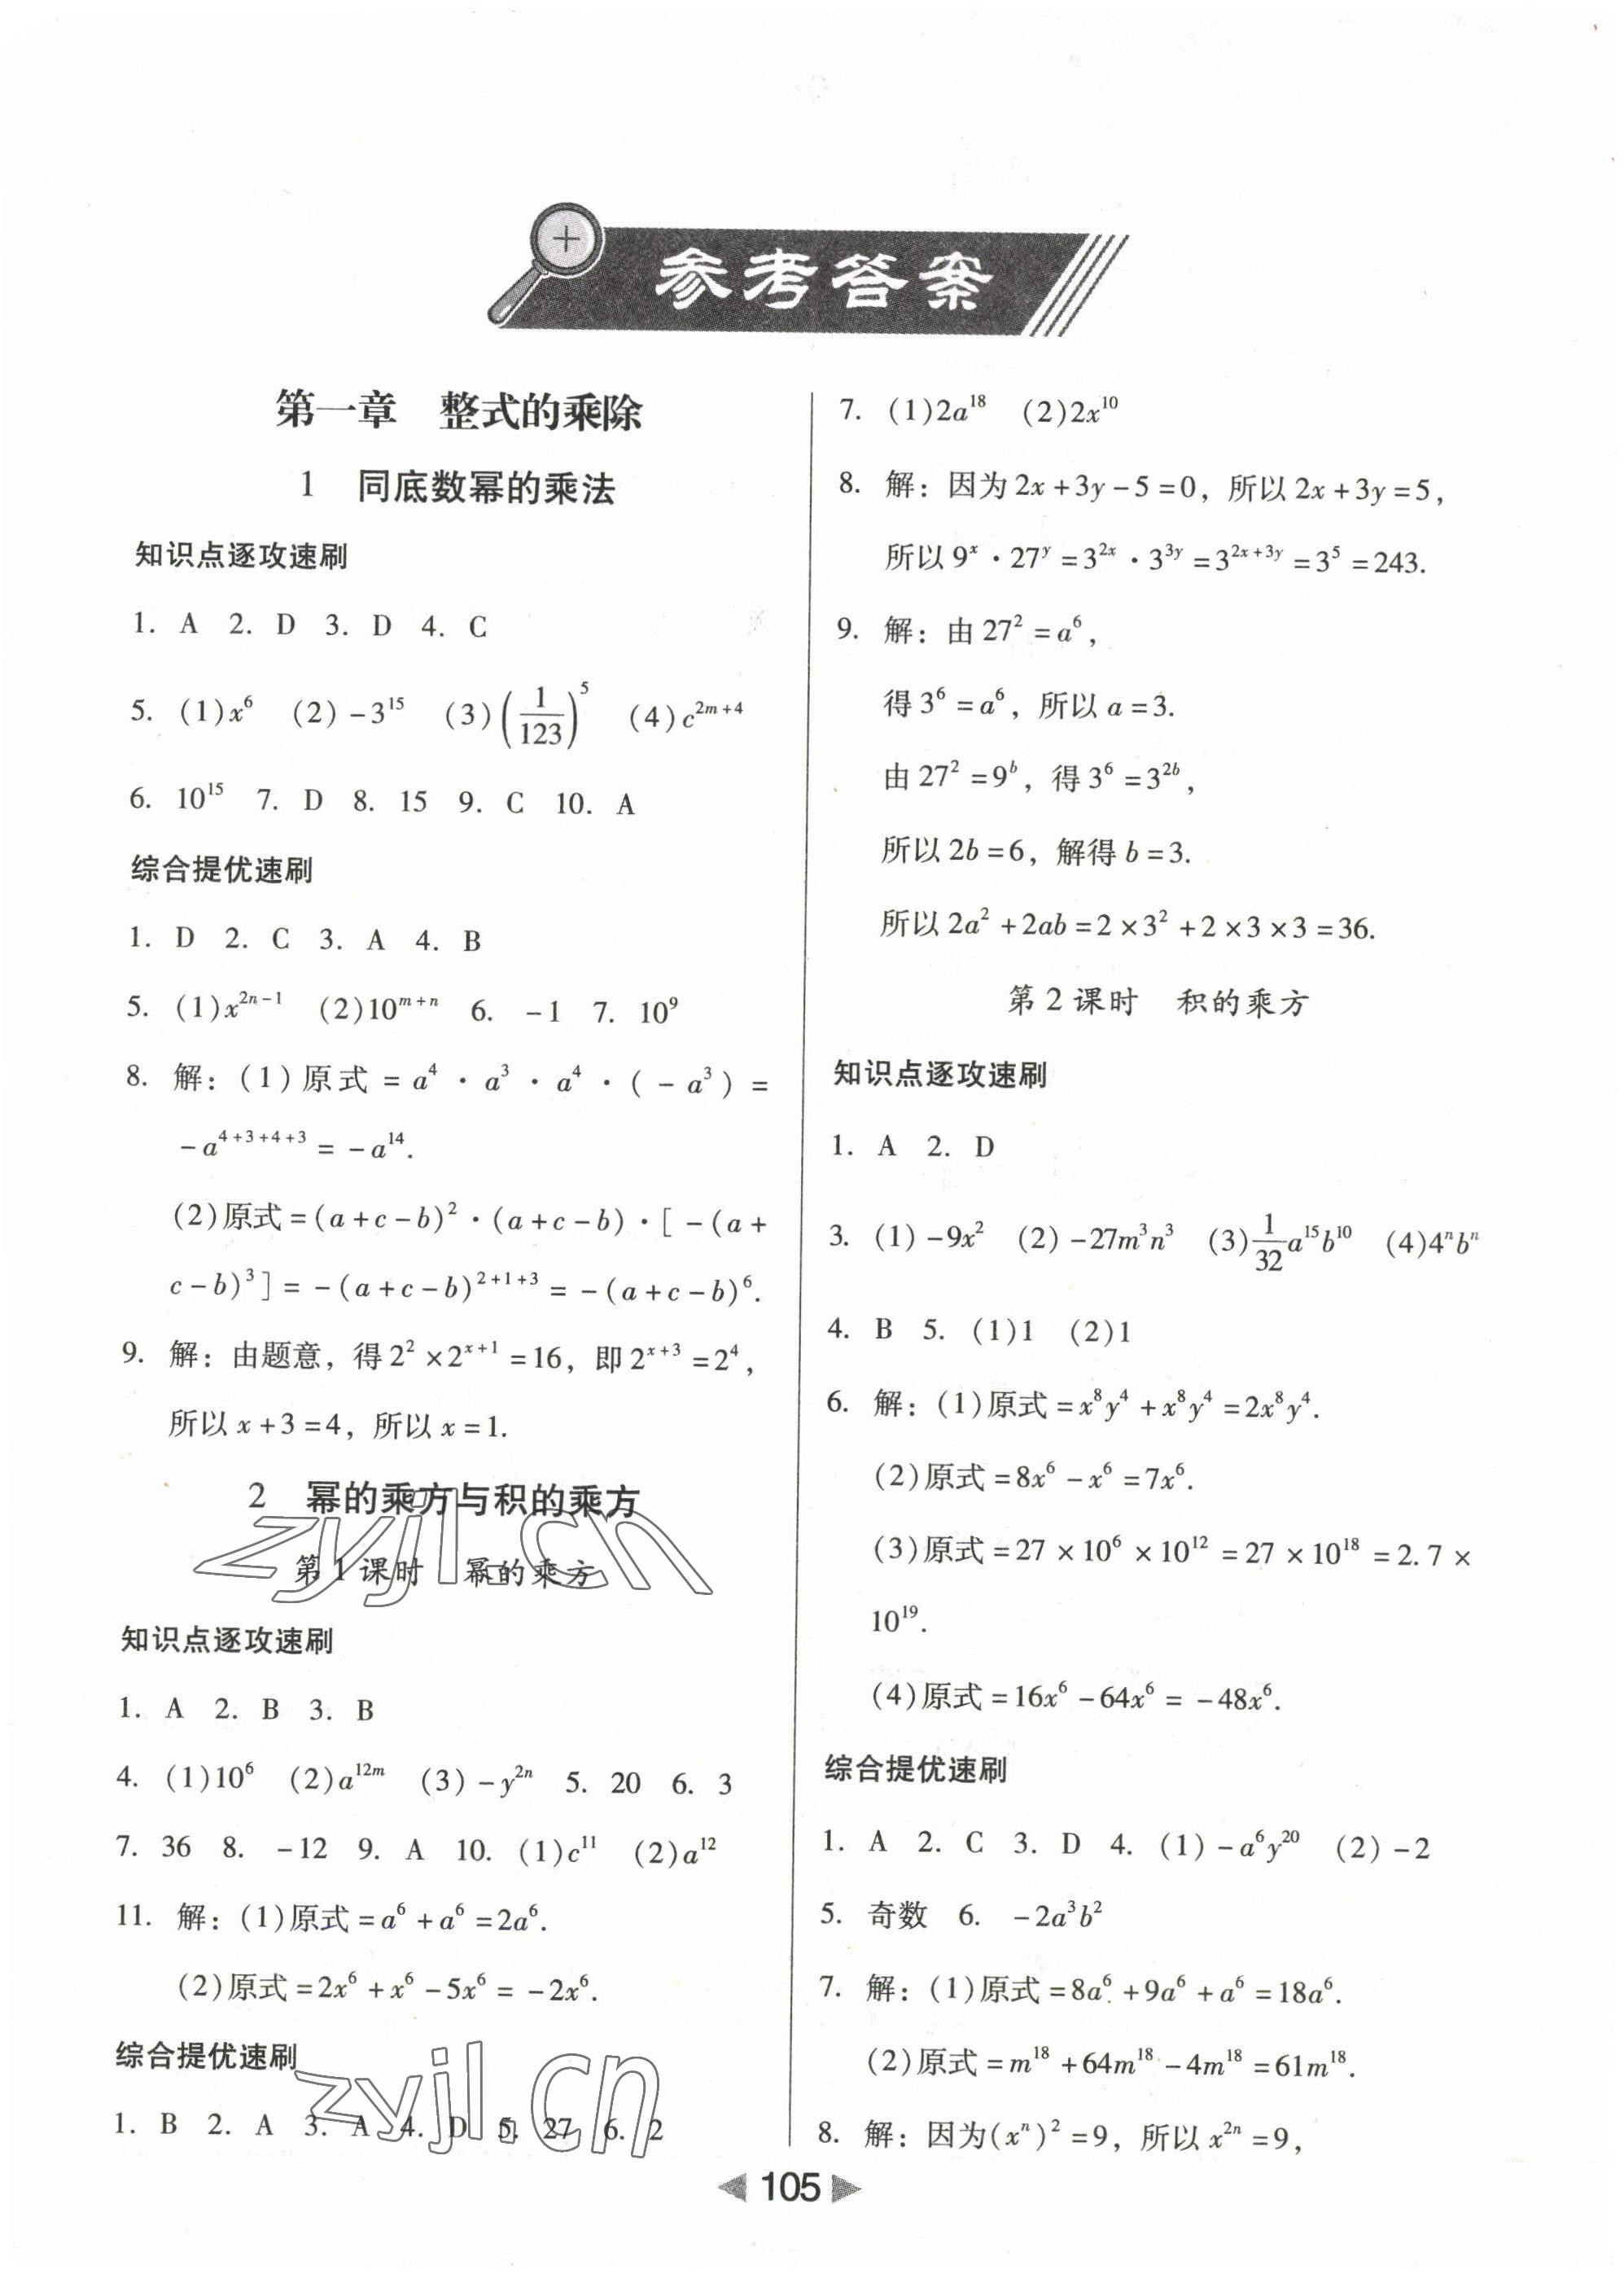 参考答案
第一章 整式的乘除
1 同底数幂的乘法
知识点逐攻速刷
1. A 2. D 3. D 4. C
5. (1)x^6 (2)-3^15 (3)(1/123)^5 (4)c^(2m+4)
6. 10^15 7. D 8. 15 9. C 10. A
综合提优速刷
1. D 2. C 3. A 4. B
5. (1)x^(2n-1) (2)10^(m+n) 6. -1 7. 10^9
8. 解:(1)原式=a^4·a^3·a^4·(-a^3)=
-a^(4+3+4+3)=-a^14.
(2)原式=(a+c-b)^2·(a+c-b)·[-(a+
c-b)^3]=-(a+c-b)^(2+1+3)=-(a+c-b)^6.
9. 解:由题意,得2^2×2^(x+1)=16,即2^(x+3)=2^4,
所以x+3=4,所以x=1.
2 幂的乘方与积的乘方
第1课时 幂的乘方
知识点逐攻速刷
1. A 2. B 3. B
4. (1)10^6 (2)a^(12m) (3)-y^(2n) 5. 20 6. 3
7. 36 8. -12 9. A 10. (1)c^11 (2)a^12
11. 解:(1)原式=a^6+a^6=2a^6.
(2)原式=2x^6+x^6-5x^6=-2x^6.
综合提优速刷
1. B 2. A 3. A 4. D 5. 27 6. 2
7. (1)2a^18 (2)2x^10
8. 解:因为2x+3y-5=0,所以2x+3y=5,
所以9^x·27^y=3^(2x)·3^(3y)=3^(2x+3y)=3^5=243.
9. 解:由27^2=a^6,
得3^6=a^6,所以a=3.
由27^2=9^b,得3^6=3^(2b),
所以2b=6,解得b=3.
所以2a^2+2ab=2×3^2+2×3×3=36.
第2课时 积的乘方
知识点逐攻速刷
1. A 2. D
3. (1)-9x^2 (2)-27m^3n^3 (3)1/32 a^15b^10 (4)4^nb^n
4. B 5. (1)1 (2)1
6. 解:(1)原式=x^8y^4+x^8y^4=2x^8y^4.
(2)原式=8x^6-x^6=7x^6.
(3)原式=27×10^6×10^12=27×10^18=2.7×
10^19.
(4)原式=16x^6-64x^6=-48x^6.
综合提优速刷
1. A 2. C 3. D 4. (1)-a^6y^20 (2)-2
5. 奇数 6. -2a^3b^2
7. 解:(1)原式=8a^6+9a^6+a^6=18a^6.
(2)原式=m^18+64m^18-4m^18=61m^18.
8. 解:因为(x^n)^2=9,所以x^(2n)=9,
105
zyjl.cn
zyjl.cn